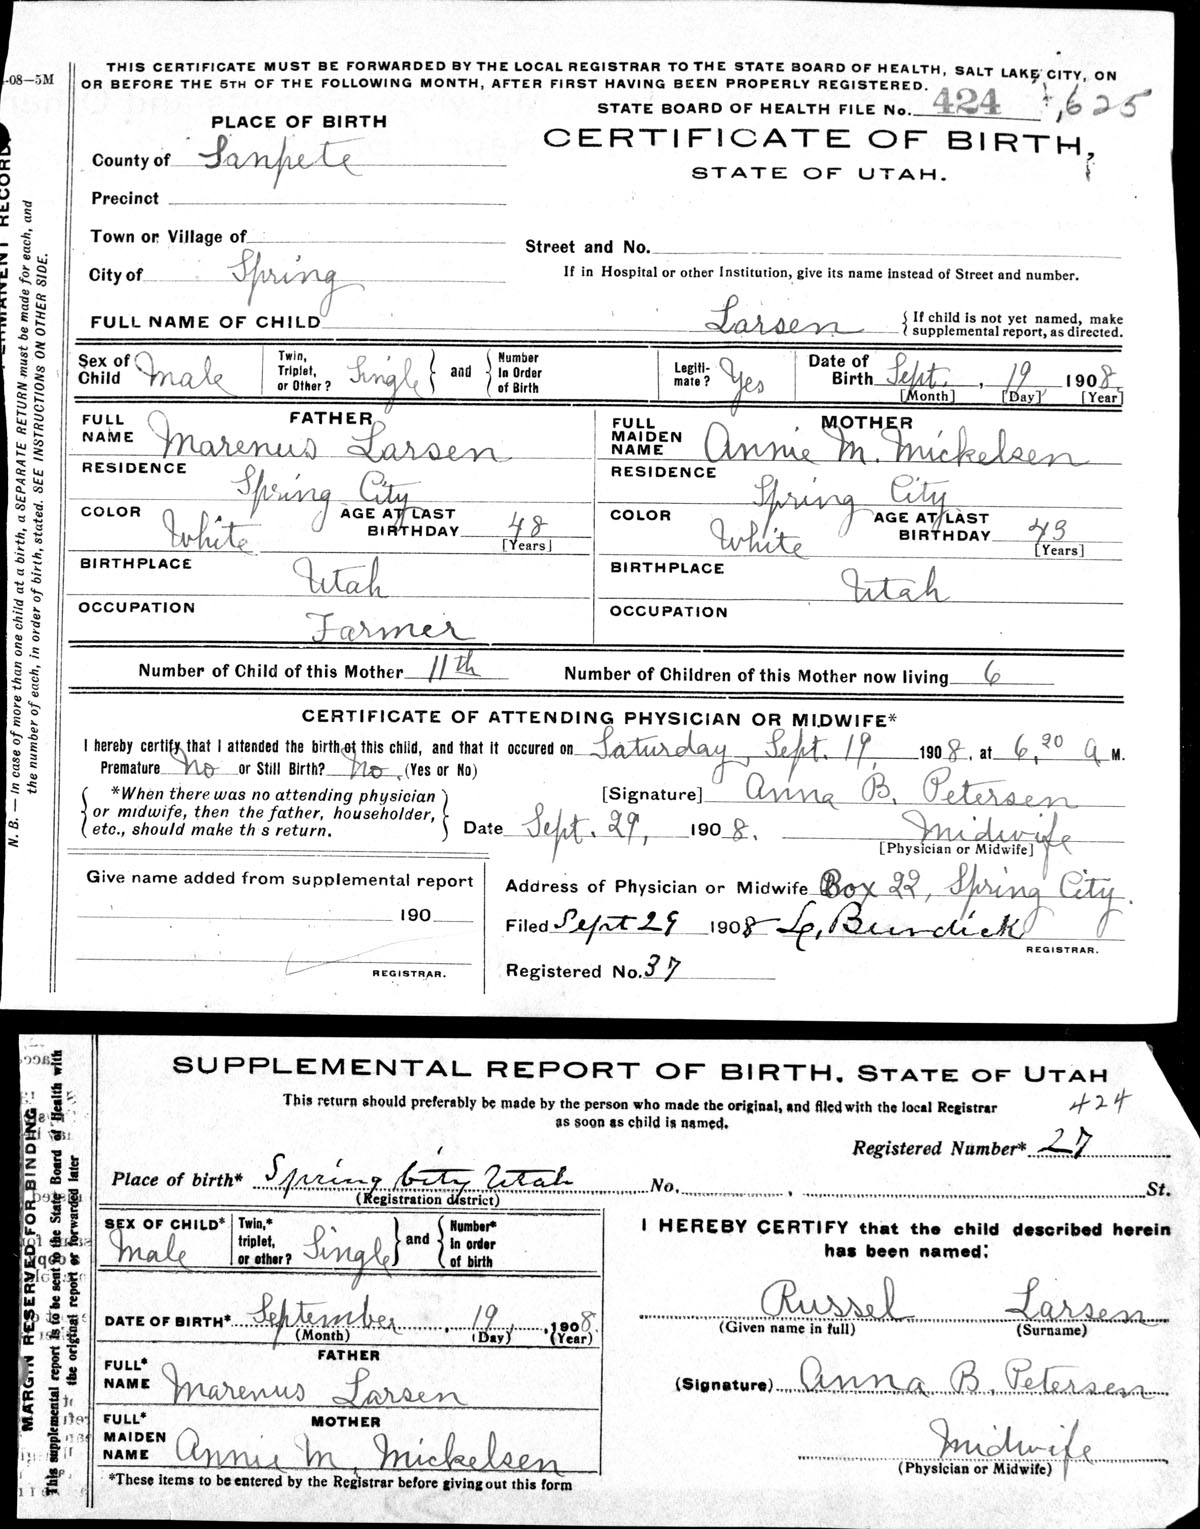 -08—5M
THIS CERTIFICATE MUST BE FORWARDED BY THE LOCAL REGISTRAR TO THE STATE BOARD OF HEALTH, SALT LAKE CITY, ON
OR BEFORE THE 5TH OF THE FOLLOWING MONTH, AFTER FIRST HAVING BEEN PROPERLY REGISTERED.
STATE BOARD OF HEALTH FILE No. 424 625
PLACE OF BIRTH
CERTIFICATE OF BIRTH,
STATE OF UTAH.
County of Sanpete
Precinct
Town or Village of
Street and No.
City of Spring
If in Hospital or other Institution, give its name instead of Street and number.
FULL NAME OF CHILD Larsen { If child is not yet named, make supplemental report, as directed.
Sex of Child Male Twin, Triplet, or Other? Single } and { Number In Order of Birth Legiti-mate? Yes Date of Birth Sept. , 19 1908.
[Month] [Day] [Year]
FATHER
FULL NAME Marenus Larsen
RESIDENCE
Spring City
COLOR White AGE AT LAST BIRTHDAY 48
[Years]
BIRTHPLACE
Utah
OCCUPATION
Farmer
MOTHER
FULL MAIDEN NAME Annie M. Mickelsen
RESIDENCE
Spring City
COLOR White AGE AT LAST BIRTHDAY 43
[Years]
BIRTHPLACE
Utah
OCCUPATION
Number of Child of this Mother 11th Number of Children of this Mother now living 6
CERTIFICATE OF ATTENDING PHYSICIAN OR MIDWIFE*
I hereby certify that I attended the birth of this child, and that it occured on Saturday, Sept. 19, 1908, at 6,20 A M.
Premature No or Still Birth? No. (Yes or No)
{ *When there was no attending physician or midwife, then the father, householder, etc., should make th s return. }
[Signature] Anna B. Petersen
Date Sept. 29, 1908. Midwife
[Physician or Midwife]
Give name added from supplemental report
190
REGISTRAR.
Address of Physician or Midwife Box 22, Spring City.
Filed Sept 29 1908 Burdick
REGISTRAR.
Registered No. 37
N. B.—In case of more than one child at a birth, a SEPARATE RETURN must be made for each, and
the number of each, in order of birth, stated. SEE INSTRUCTIONS ON OTHER SIDE.
SUPPLEMENTAL REPORT OF BIRTH, STATE OF UTAH
This return should preferably be made by the person who made the original, and filed with the local Registrar
as soon as child is named.
424
Registered Number* 27
Place of birth* Spring City Utah No. , St.
(Registration district)
SEX OF CHILD* Male Twin,* triplet, or other? Single } and { Number* In order of birth
DATE OF BIRTH* September , 19 , 1908.
(Month) (Day) (Year)
FATHER
FULL* NAME Marenus Larsen
MOTHER
FULL* MAIDEN NAME Annie M. Mickelsen
*These items to be entered by the Registrar before giving out this form
I HEREBY CERTIFY that the child described herein
has been named:
Russel Larsen
(Given name in full) (Surname)
(Signature) Anna B. Petersen
Midwife
(Physician or Midwife)
MARGIN RESERVED FOR BINDING
This supplemental report is to be sent to the State Board of Health with
the original report or forwarded later